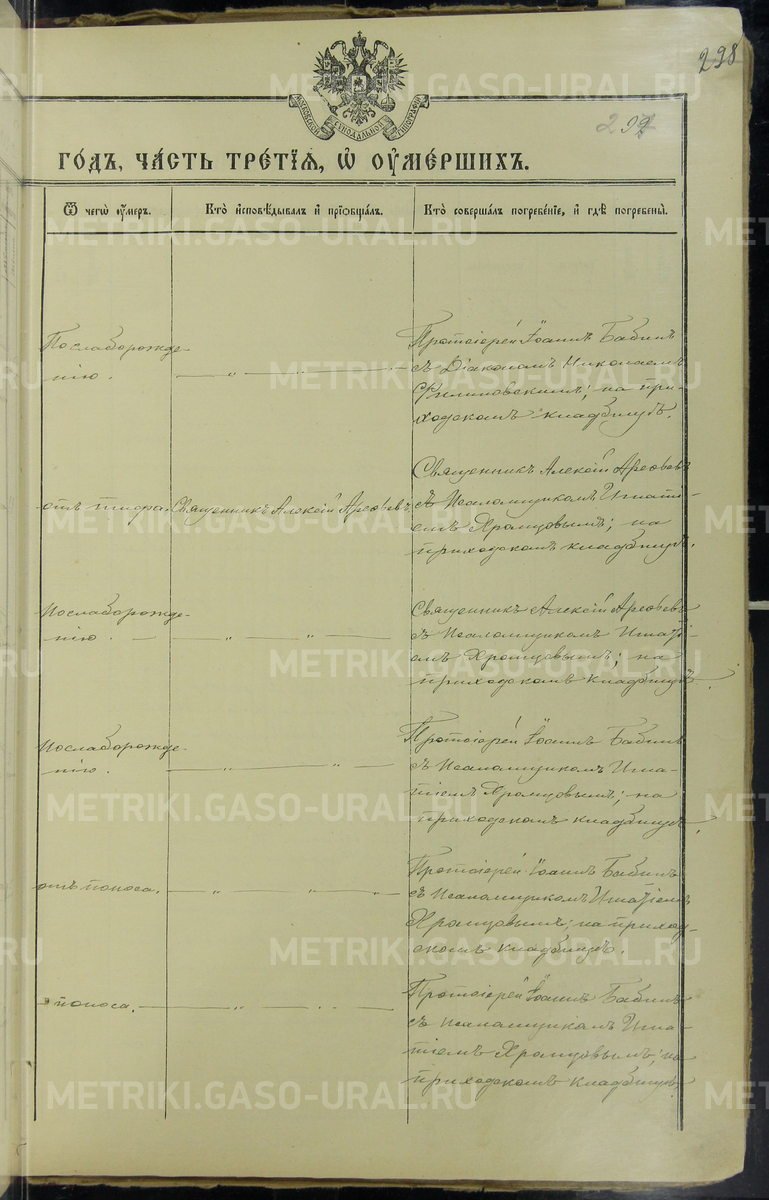 298
МОСКОВСКОЙ СѴНОДАЛЬНОЙ ТИПОГРАФІИ
ГО́ДЪ, ЧА́СТЬ ТРЕ́ТІѦ, Ѡ҆ ОУ҆МЕ́РШИХЪ.
Ѿ чегѡ̀ оу҆́меръ.
Кто̀ и҆сповѣ́дывалъ и҆ прїѡбща́лъ.
Кто̀ соверша́лъ погребе́нїе, и҆ гдѣ̀ погребены̀.
По слаборожде-
нію.
Протоіерей Іоаннъ Бабинъ
съ Діакономъ Николаемъ
на при-
ходскомъ кладбищѣ.
отъ тифа
Священникъ Алексій Арефьевъ
Священникъ Алексій Арефьевъ
съ Псаломщикомъ Игнаті-
емъ Хромцовымъ; на
приходскомъ кладбищѣ.
По слаборожде-
нію.
Священникъ Алексій Арефьевъ
съ Псаломщикомъ Игнаті-
емъ Хромцовымъ; на
приходскомъ кладбищѣ.
По слаборожде-
нію.
Протоіерей Іоаннъ Бабинъ
съ Псаломщикомъ Игна-
тіемъ Хромцовымъ; на
приходскомъ кладбищѣ.
отъ поноса.
Протоіерей Іоаннъ Бабинъ
съ Псаломщикомъ Игнатіемъ
Хромцовымъ; на приход-
скомъ кладбищѣ.
" поноса.
Протоіерей Іоаннъ Бабинъ
съ Псаломщикомъ Игна-
тіемъ Хромцовымъ; на
приходскомъ кладбищѣ.
METRIKI.GASO-URAL.RU